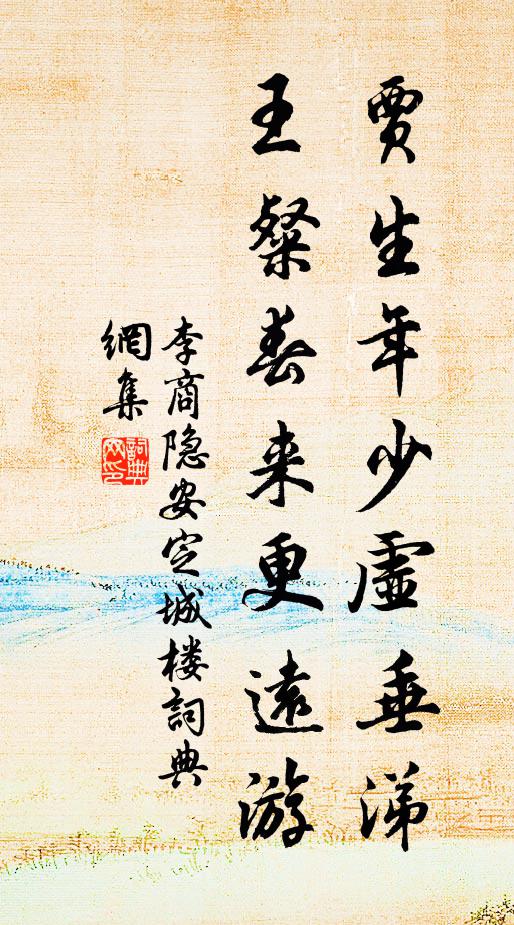 贾生年少虚垂涕
王粲春来更远游
李商隐安定城楼詞典
網集
詞典
网印